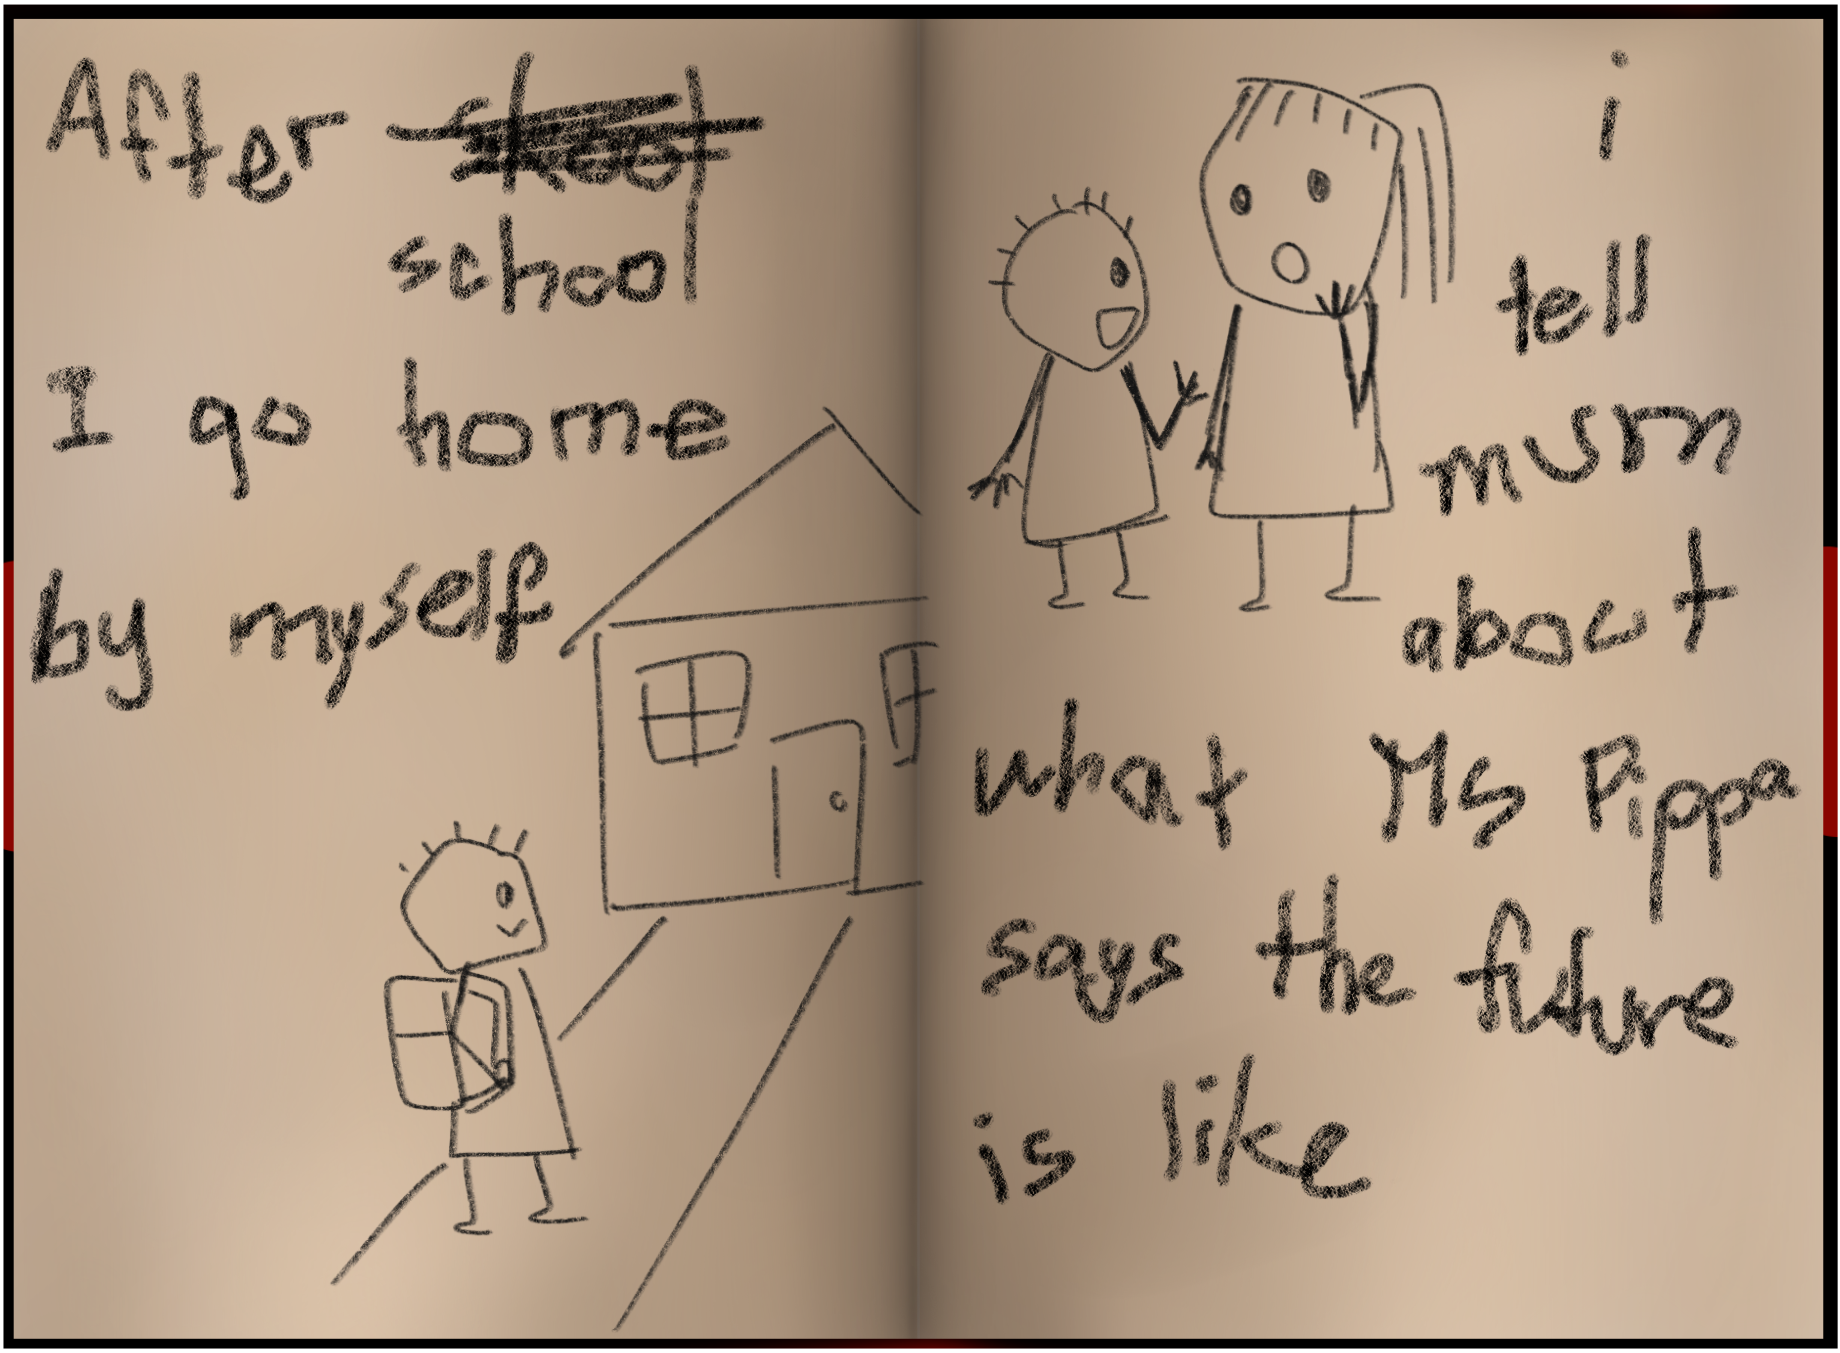 After skool
school
I go home
by myself
i
tell
mum
about
what Ms Pippa
says the future
is like